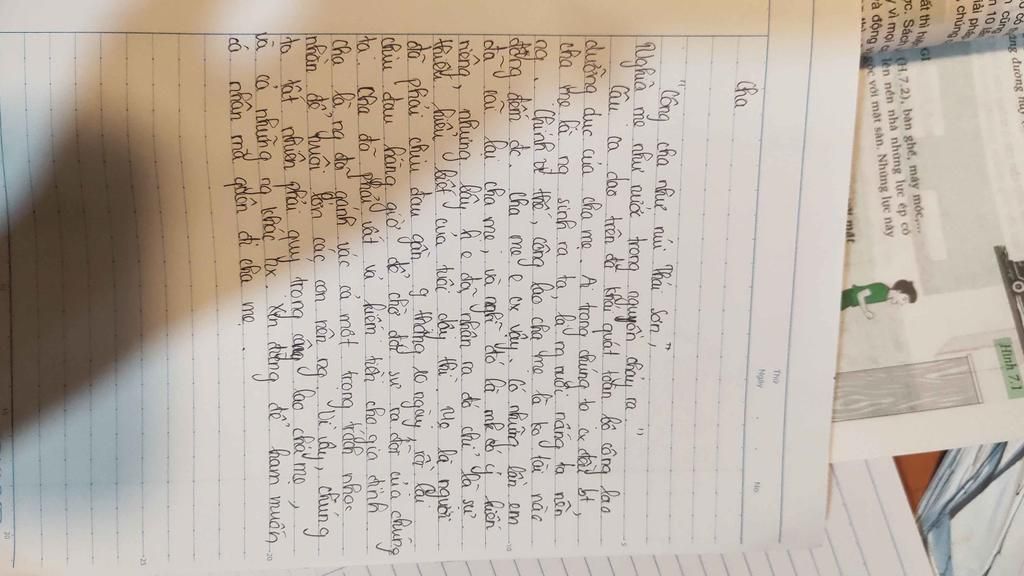 cha
"Công cha như núi Thái Sơn,
Nghĩa mẹ như nước trong nguồn chảy ra"
Câu ca dao trên đã khái quát toàn bộ công lao
dưỡng dục của cha mẹ. A trong chúng ta cx đều bt,
cha mẹ là ng sinh ra ta, là ng nuôi nấng ta nên
ng. Chính vì thế, công lao cha mẹ là to tát
đối với e cx vậy. Có những lần em
đã cãi lại cha mẹ, và đó là mk có ý kiến
riêng, nhưng bây h e đã nhận ra đó chỉ là sự
thiếu hiểu biết của tuổi dậy thì. Mẹ là người
đã phải chịu đau gần 9 tháng 10 ngày rồi lại
chịu đau hàng giờ để chờ đợi sự ra đời của chúng
ta. Cha đã phải vất vả kiếm tiền cho gia đình
Cha là ng đã gánh vác cả một trọng trách nhọc
nhằn để nuôi lớn các con nên ng. Vì vậy, chúng
ta tất nhiên phải quý trọng công lao cha mẹ,
và cả những ng khác nx. Xin đừng để ham muốn
cá nhân mà quên đi cha mẹ.
Thứ
Ngày
No
5
10
20
25
Hình 7.1
(H.7.2), bàn ghế, máy móc,...
lên nền nhà những lực ép có
góc với mặt sàn. Những lực này